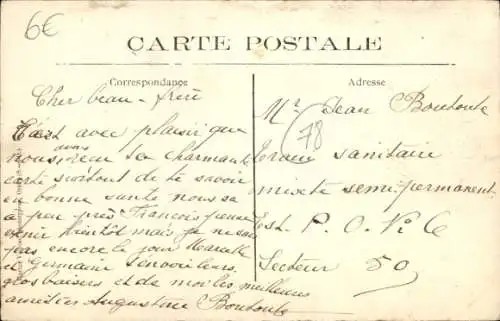 6€
CARTE POSTALE
Correspondance
Adresse
Cher beau-frère
C'est avec plaisir que
nous avons reçu ta charmante
carte surtout de te savoir
en bonne santé nous sa
a peu près François pense
venir bientôt mais je ne sais
pas encore le jour Marcelle
et Germaine t'envoi leurs
gros baisers et de moi les meilleures
amitiés Augustine Boutoute
Mr Jean Boutoute
78
Train sanitaire
mixte semi-permanent
Est. P. O. No 6
Secteur 50